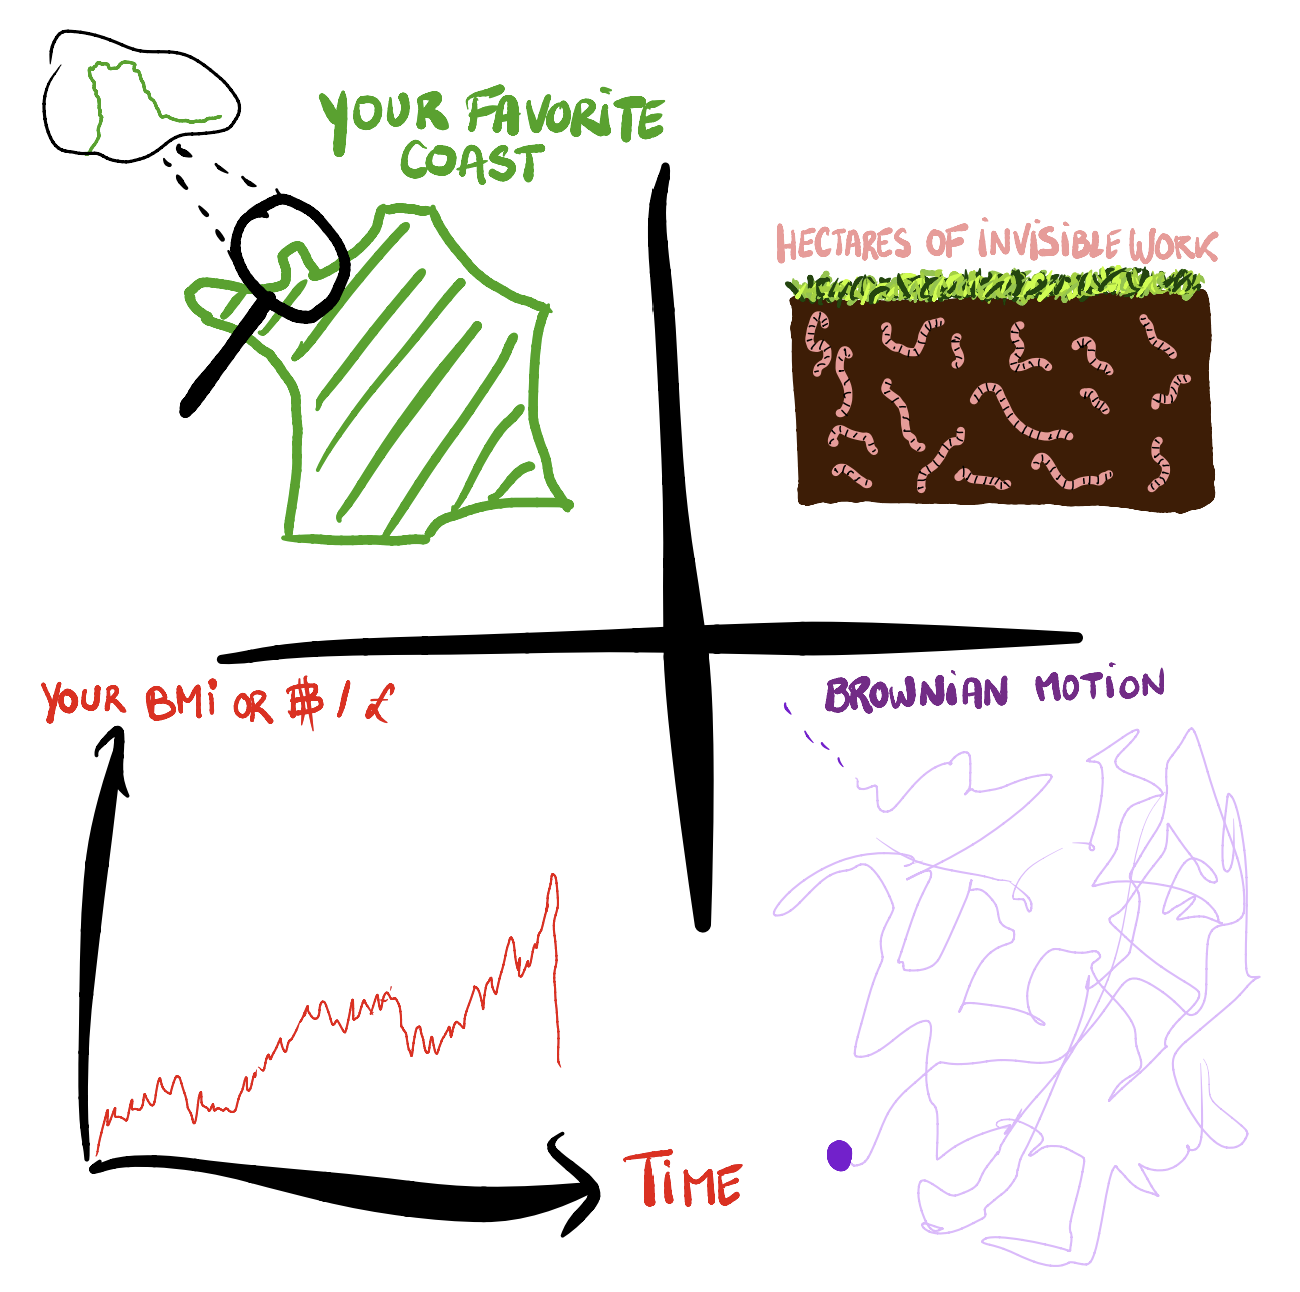 YOUR FAVORITE
COAST
HECTARES OF INVISIBLE WORK
YOUR BMI OR $ / £
TIME
BROWNIAN MOTION